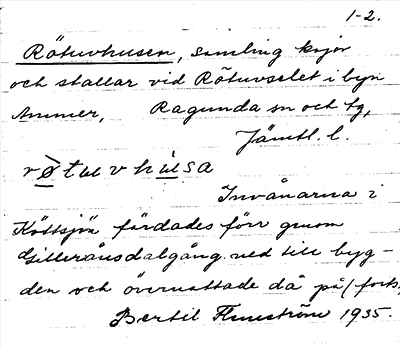 1-2.
Rötuvhusen, samling kojor
och stallar vid Rötuvselet i byn
Ammer, Ragunda sn och tg,
Jämtl. l.
røtuvhusa
Invånarna i
Köttsjön färdades förr genom
Gilleråsdalgång ned till byg-
den och övernattade då på (forts.
Bertil Flemström 1935.